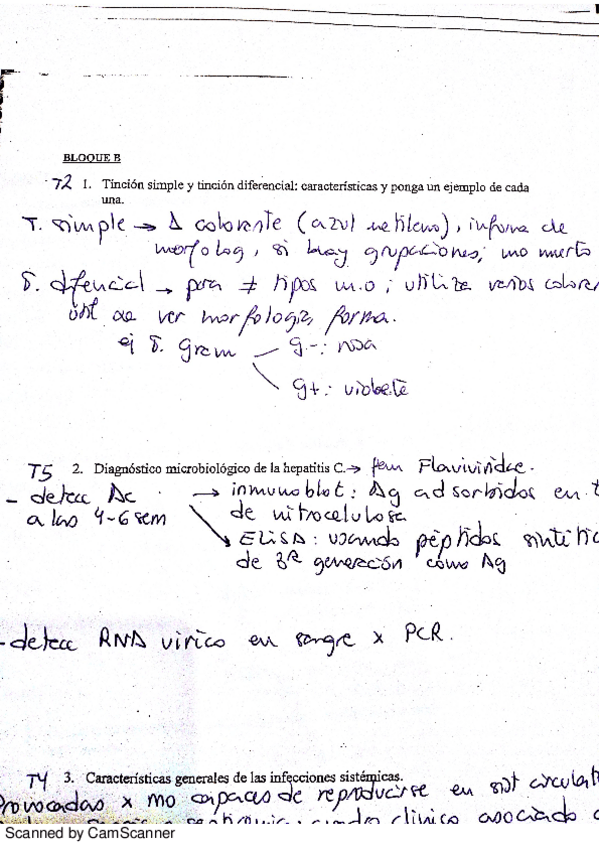 BLOQUE B
T2 1. Tinción simple y tinción diferencial: características y ponga un ejemplo de cada
una.
T. simple → Δ colorante (azul metileno), informa de
morfolog, si hay grupaciones; mo muerto
T. difencial → para ≠ tipos m.o; utiliza varios color
de ver morfologia, forma.
ej T. gram — g-: rosa
g+: violeta
T5 2. Diagnóstico microbiológico de la hepatitis C. → fam Flaviviridae.
- detecc Ac → inmunoblot: Ag adsorbidos en t
a las 4-6 sem de nitrocelulosa
ELISA: usando péptidos sintétic
de 3ª generación como Ag
- detecc RNA vírico en sangre x PCR.
T4 3. Características generales de las infecciones sistémicas.
Provocadas x mo capaces de reproducirse en sist circulat
cuadro clinico asociado
Scanned by CamScanner